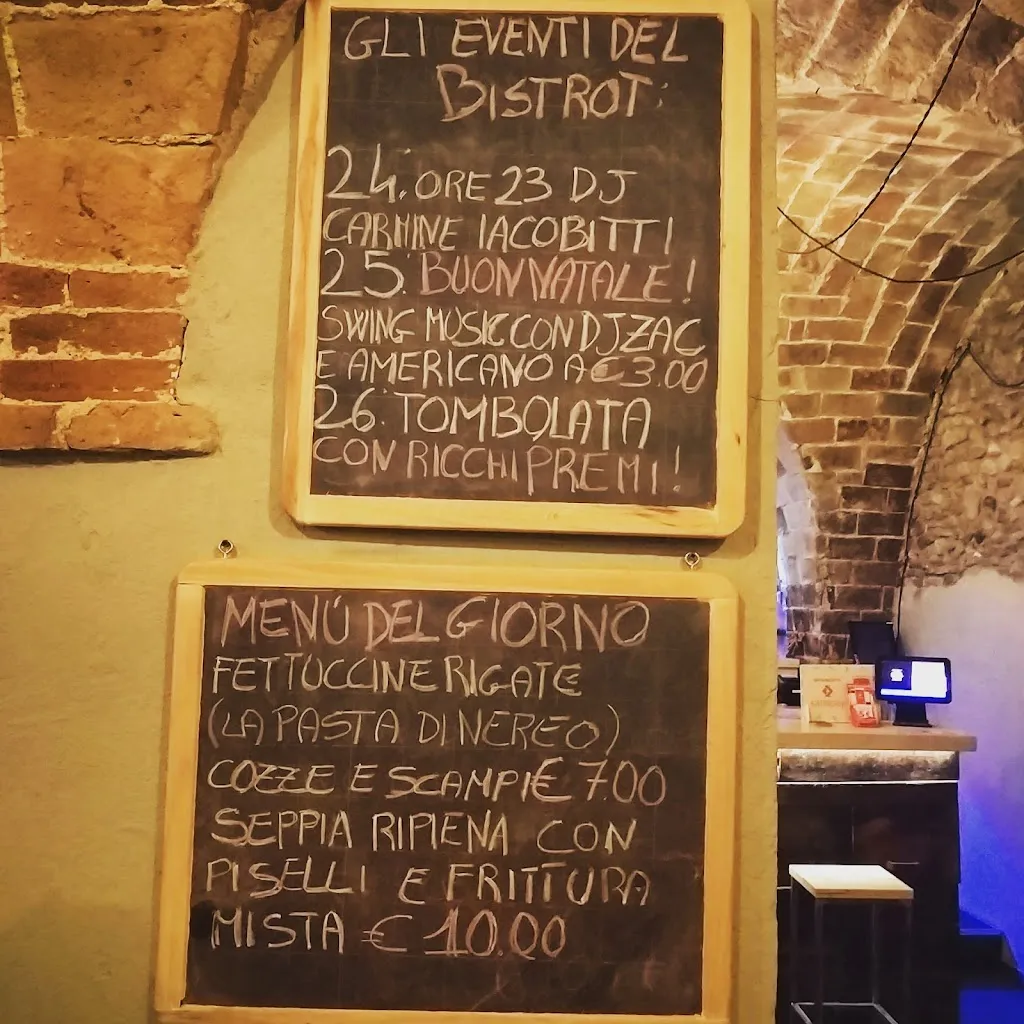 GLI EVENTI DEL
BISTROT:
24. ORE 23 DJ
CARMINE IACOBITTI
25. BUON NATALE!
SWING MUSIC CON DJ ZAC
E AMERICANO A €3.00
26. TOMBOLATA
CON RICCHI PREMI!
MENÚ DEL GIORNO
FETTUCCINE RIGATE
(LA PASTA DI NEREO)
COZZE E SCAMPI € 7.00
SEPPIA RIPIENA CON
PISELLI E FRITTURA
MISTA € 10.00